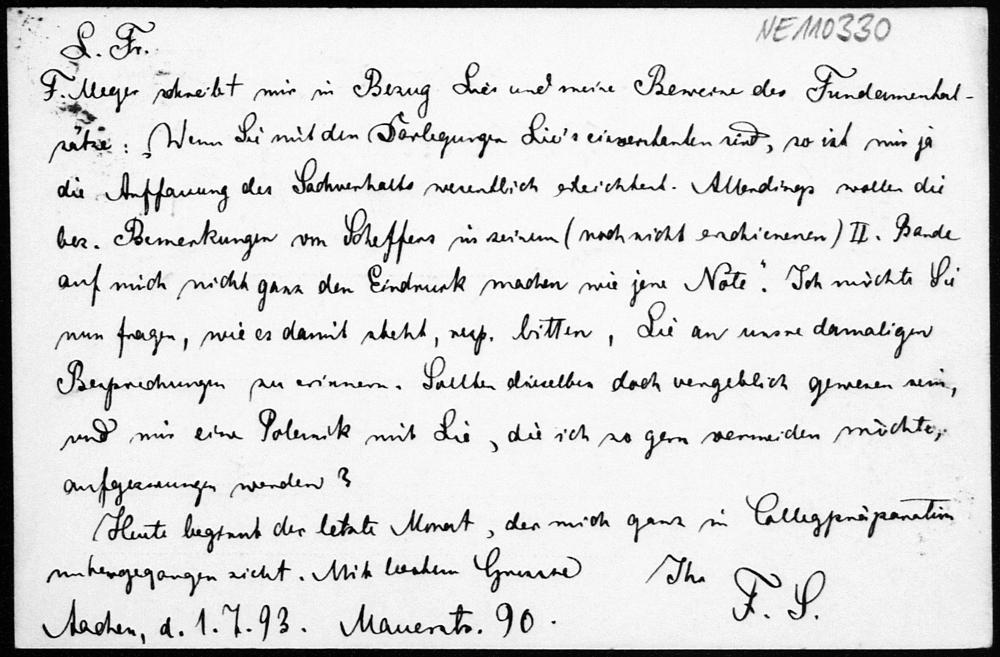 NE110330
L. Fr.
F. Meyer schreibt mir in Bezug Lies und meine Beweise des Fundamental-
sätze: „Wenn Sie mit den Darlegungen Lie's einverstanden sind, so ist mir ja
die Auffassung des Sachverhalts wesentlich erleichtert. Allerdings wollen die
bez. Bemerkungen von Scheffers in seinem (noch nicht erschienenen) II. Bande
auf mich nicht ganz den Eindruck machen wie jene Note". Ich möchte Sie
nun fragen, wie es damit steht, resp. bitten, Lie an unsre damaligen
Besprechungen zu erinnern. Sollten dieselben doch vergeblich gewesen sein,
und mir eine Polemik mit Lie, die ich so gern vermeiden möchte,
aufgezwungen werden?
Heute beginnt der letzte Monat, der mich ganz in Collegpräparation
untergegangen sieht. Mit bestem Grusse Ihr
F. S.
Aachen, d. 1.7.93. Mauerstr. 90.